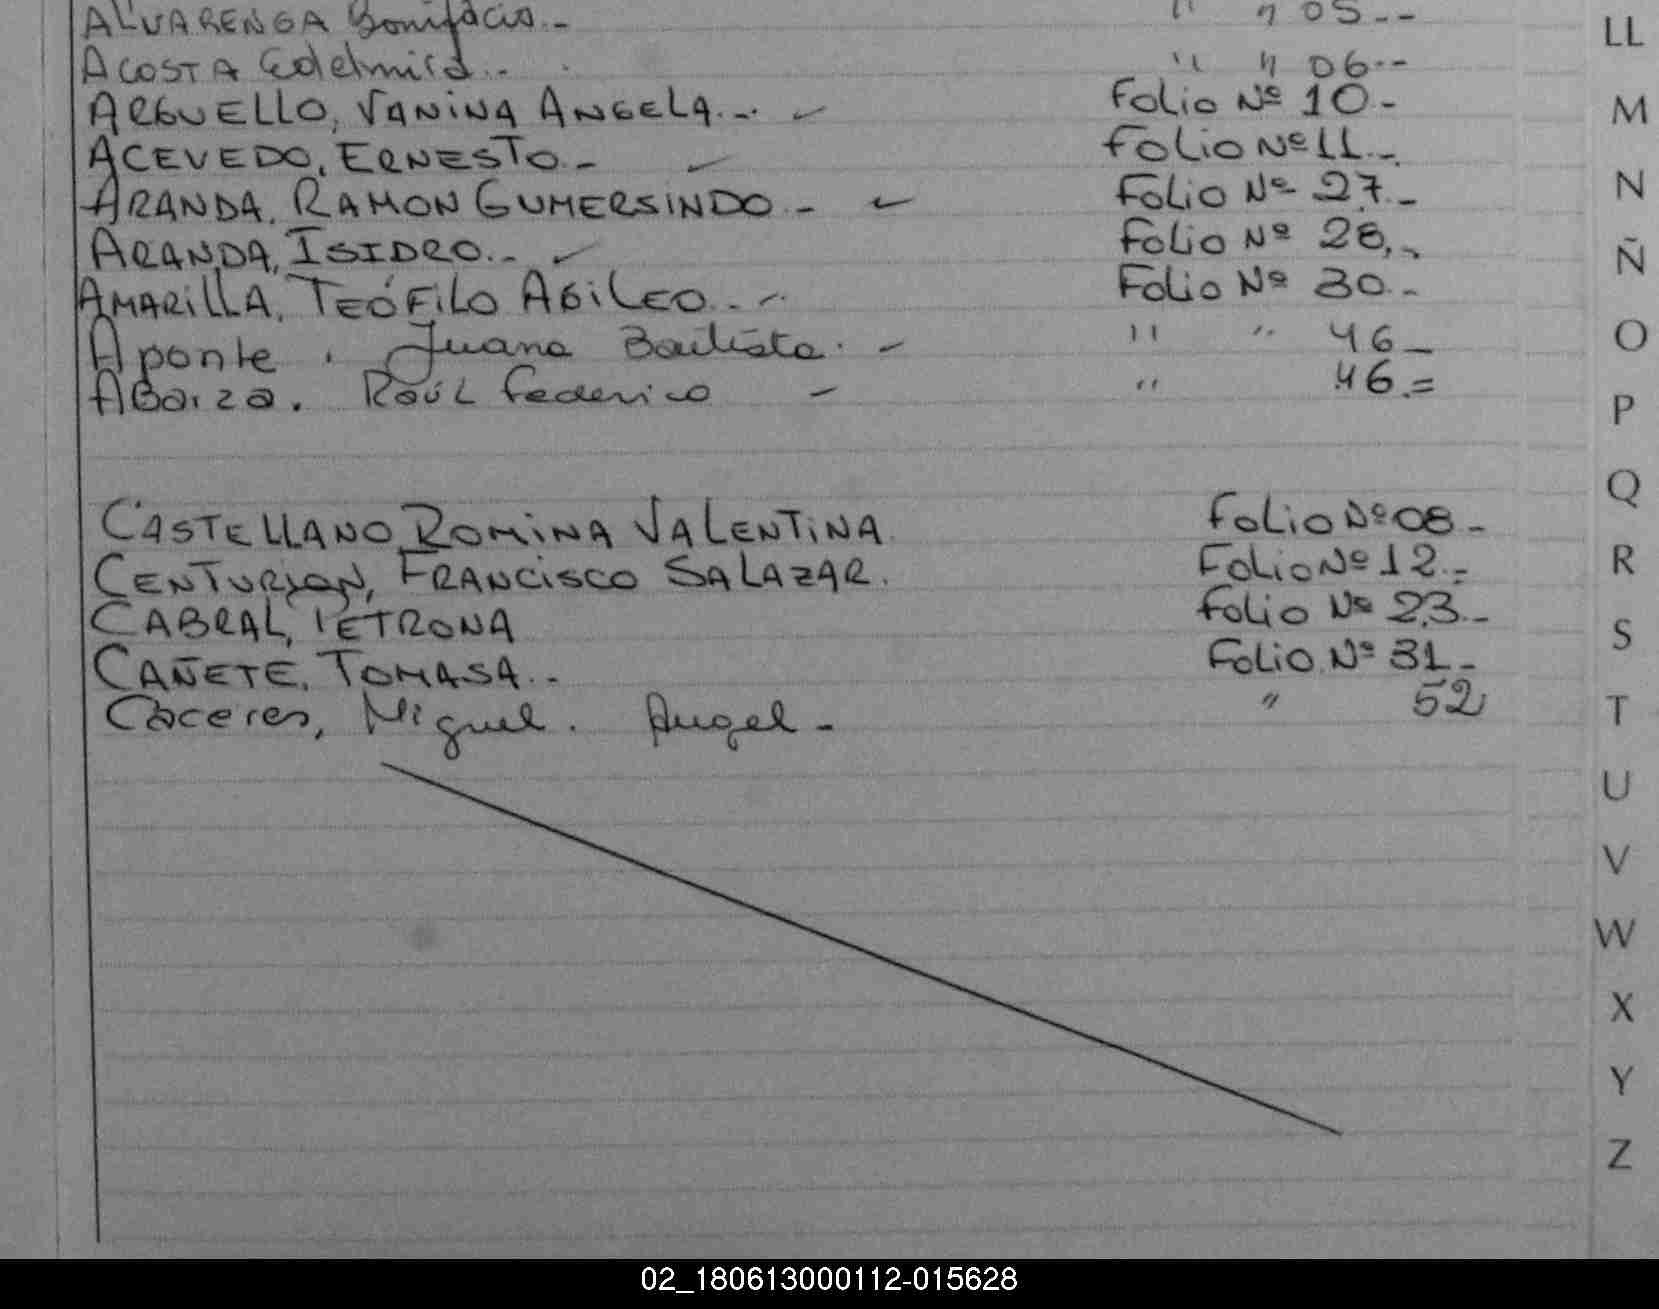 ALVARENGA Bonifacio.- " " 05--
ACOSTA Edelmira.-. " " 06--
ARGUELLO, VANINA ANGELA.-. Folio Nº 10.-
ACEVEDO, ERNESTO.- Folio Nº 11.-.
ARANDA, RAMON GUMERSINDO.- Folio Nº 27.-
ARANDA, ISIDRO.- Folio Nº 28.-
AMARILLA, TEÓFILO AGILEO.-. Folio Nº 30.-
Aponte, Juana Bautista. - " " 46_
ABarza. Raúl Federico - " 46.=
CASTELLANO ROMINA VALENTINA. Folio Nº 08.-
CENTURION, FRANCISCO SALAZAR. Folio Nº 12.-
CABRAL, PETRONA Folio Nº 23.-
CAÑETE, TOMASA.-. Folio Nº 31.-
Caceres, Miguel. Angel- " 52
LL
M
N
Ñ
O
P
Q
R
S
T
U
V
W
X
Y
Z
02_180613000112-015628